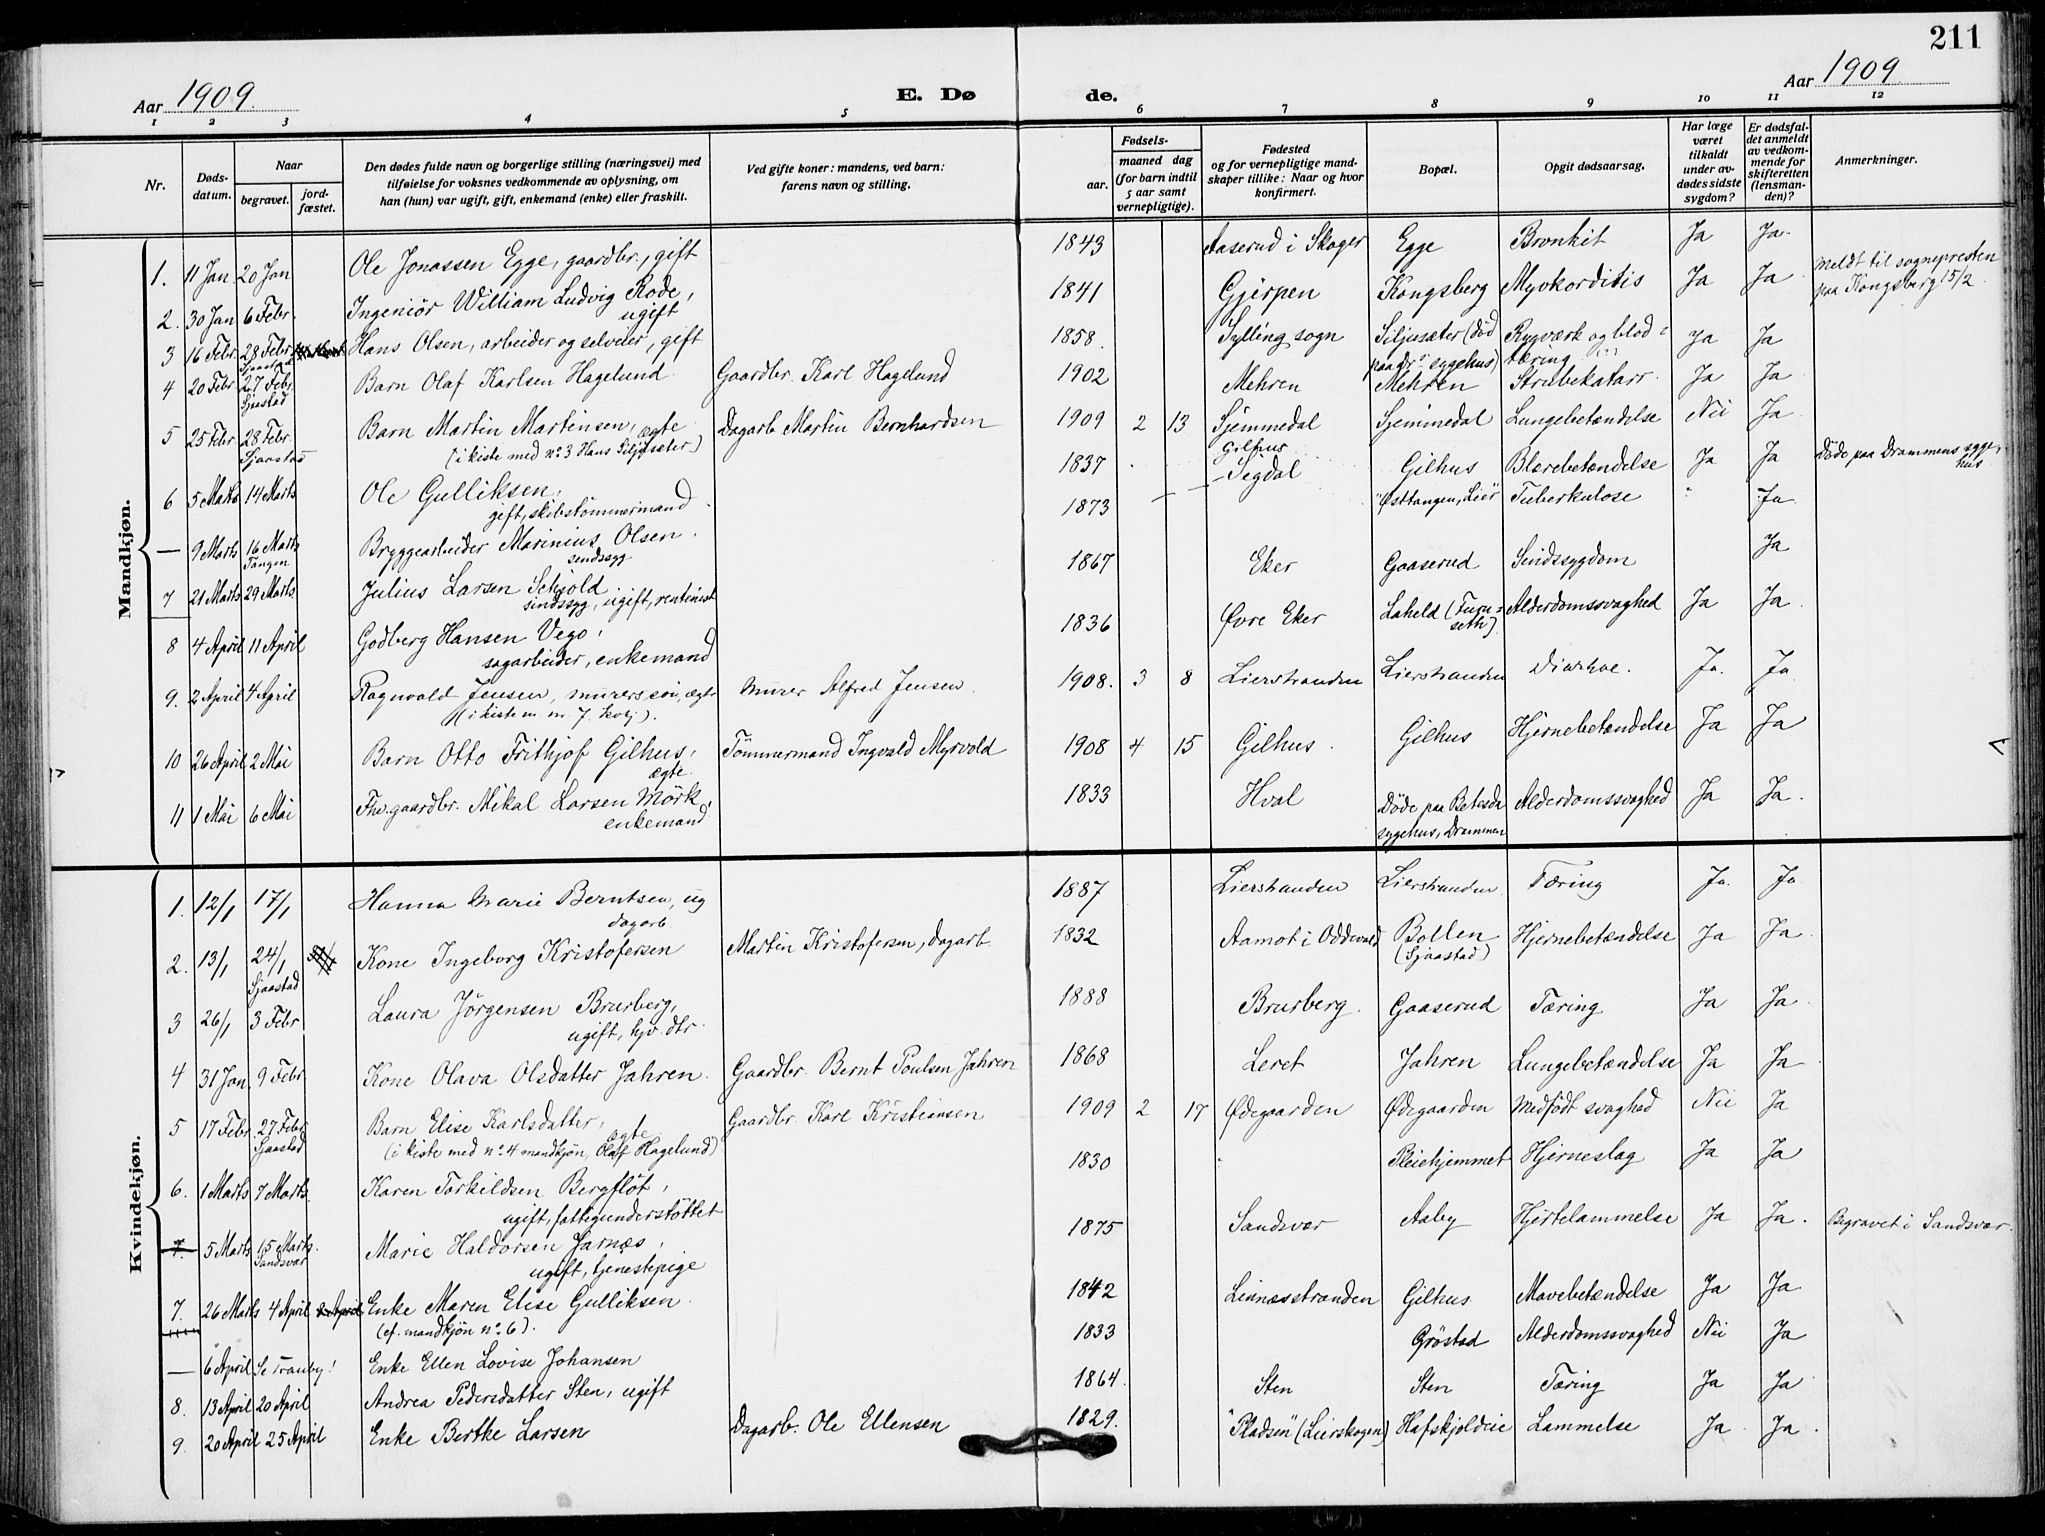 211
Aar 1909. E. Døde. Aar 1909
1 2 3 4 5 6 7 8 9 10 11 12
Nr. Døds-datum. Naar begravet. jord-fæstet. Den dødes fulde navn og borgerlige stilling (næringsvei) med tilføielse for voksnes vedkommende av oplysning, om han (hun) var ugift, gift, enkemand (enke) eller fraskilt. Ved gifte koner: mandens, ved barn: farens navn og stilling. Fødsels- aar. maaned dag (for barn indtil 5 aar samt vernepligtige). Fødested og for vernepligtige mandskaper tillike: Naar og hvor konfirmert. Bopæl. Opgit dødsaarsag. Har læge været tilkaldt under avdødes sidste sygdom? Er dødsfaldet anmeldt av vedkommende for skifteretten (lensmanden)? Anmerkninger.
Mandkjøn.
1. 11 Jan 20 Jan Ole Jonassen Egge, gaardbr., gift 1843 Aaserud i Skoger Egge Bronkit Ja Ja
2. 30 Jan 6 Febr. Ingeniör William Ludvig Rode, ugift 1841 Gjerpen Kongsberg Myokorditis Ja Ja Meldt til sognepresten paa Kongsberg 15/2
3 16 Febr. 28 Febr. Sjaastad Hans Olsen, arbeider og selveier, gift 1858. Sylling sogn Siljusæter (död paa Dr. sygehus) Rygværk og blodtæring (?) Ja Ja
4 20 Febr. 27 Febr. Sjaastad Barn Olaf Karlsen Hagelund Gaardbr. Karl Hagelund 1902 Mehren Mehren Strubekatarr. Ja Ja
5 25 Febr. 28 Febr. Sjaastad Barn Martin Martinsen, ægte (i kiste med no 3 Hans Siljusæter) Dagarb. Martin Bernhardsen 1909 2 13 Sjemmedal Sjemmedal Lungebetændelse Nei Ja
6 5 Marts 14 Marts Ole Gulliksen, gift, skibstömmermand. 1837 Gilhus Segdal Gilhus Blærebetændelse Ja Ja Døde paa Drammens sygehus
— 9 Marts 16 Marts Tangen Bryggearbeider Marinius Olsen. sindssyg 1873 — — Østtangen, Lier Tuberkulose " Ja
7 21 Marts 29 Marts Julius Larsen Schjold sindssyg, ugift, rentenist 1867 Eker Gaaserud Sindssygdom Ja
8 4 April 11 April Godberg Hansen Vego, sagarbeider, enkemand 1836 Øvre Eker Laheld (Furuseth) Alderdomssvaghed Ja Ja
9. 2 April 4 April Ragnvald Jensen, murers søn, ægte (i kiste m. nr 7. kvkj). Murer Alfred Jensen. 1908. 3 8 Lierstranden Lierstranden Diarhoe. Ja. Ja
10 26 April 2 Mai Barn Otto Frithjof Gilhus, ægte. Tömmermand Ingvald Myrvold 1908 4 15 Gilhus. Gilhus Hjernebetændelse Ja Ja
11 1 Mai 6 Mai Fhv. gaardbr. Mikal Larsen Mörk, enkemand 1833 Hval Døde paa Betesda sygehus, Drammen Alderdomssvaghed Ja Ja.
Kvindekjøn.
1. 12/1 17/1 Hanna Marie Berntsen, ug dagarb 1887 Lierstranden Lierstranden Tæring Ja. Ja
2. 13/1 24/1 Sjaastad Kone Ingeborg Kristofersen Martin Kristofersen, dagarb. 1832 Aamot i Oddevald Bollen (Sjaastad) Hjernebetændelse Ja Ja
3 26/1 3 Febr Laura Jörgensen Brurberg, ugift, hjv. dtr. 1888 Brurberg. Gaaserud Tæring Ja Ja
4 31 Jan. 9 Febr. Kone Olava Olsdatter Jahren. Gaardbr. Bernt Poulsen Jahren 1868 Leret Jahren Lungebetændelse Ja Ja
5 17 Febr. 27 Febr Sjaastad Barn Elise Karlsdatter, ægte (i kiste med no. 4 mandkjön, Olaf Hagelund) Gaardbr. Karl Kristiansen 1909 2 17 Ødegaarden Ødegaarden Medfödt svaghed Nei Ja
6. 1 Marts 7 Marts Karen Torkildsen Bergflöt, ugift, fattigunderstöttet 1830 Pleiehjemmet Hjerneslag Ja Ja
7. 5 Marts 15 Marts. Sandsvær Marie Haldorsen Jarnæs, ugift, tjenestepige 1875 Sandsvær Aaby Hjertelammelse Ja Ja. Begravet i Sandsvær.
7. 26 Marts 4 April 2 April Enke Maren Elise Gulliksen (cf. mandkjön no. 6). 1842 Linnæsstranden Gilhus Mavebetændelse Ja Ja
— 6 April Se Tranby! Enke Ellen Lovise Johansen 1833 Gröstad Alderdomssvaghed Nei Ja
8. 13 April 20 April Andrea Pedersdatter Sten, ugift 1864. Sten Sten Tæring Ja Ja
9. 20 April 25 April Enke Berthe Larsen Dagarb. Ole Ellensen 1829. "Pladsen" (Lierskogen) Hafskjoldeie Lammelse Ja Ja.